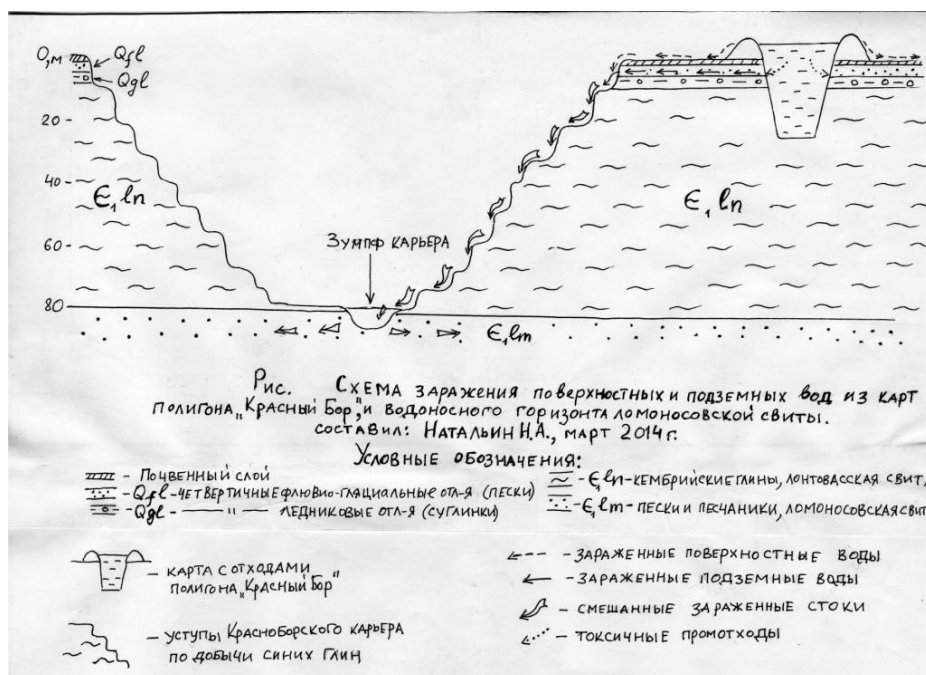 0,м
Qfl
Qgl
20
40
60
80
Є₁ln
Є₁ln
Зумпф карьера
Є₁lm
Рис. Схема заражения поверхностных и подземных вод из карт
полигона „Красный Бор", и водоносного горизонта ломоносовской свиты.
составил: Натальин Н.А., март 2014 г.
Условные обозначения:
- Почвенный слой
- Qfl - четвертичные флювио-гляциальные отл-я (пески)
- Qgl - —— " —— ледниковые отл-я (суглинки)
- Є₁ln - кембрийские глины, лонтовасская свит,
- Є₁lm - пески и песчаники, ломоносовская свит
- карта с отходами
полигона „Красный Бор"
- уступы Красноборского карьера
по добычи синих глин
- зараженные поверхностные воды
- зараженные подземные воды
- смешанные зараженные стоки
- токсичные промотходы